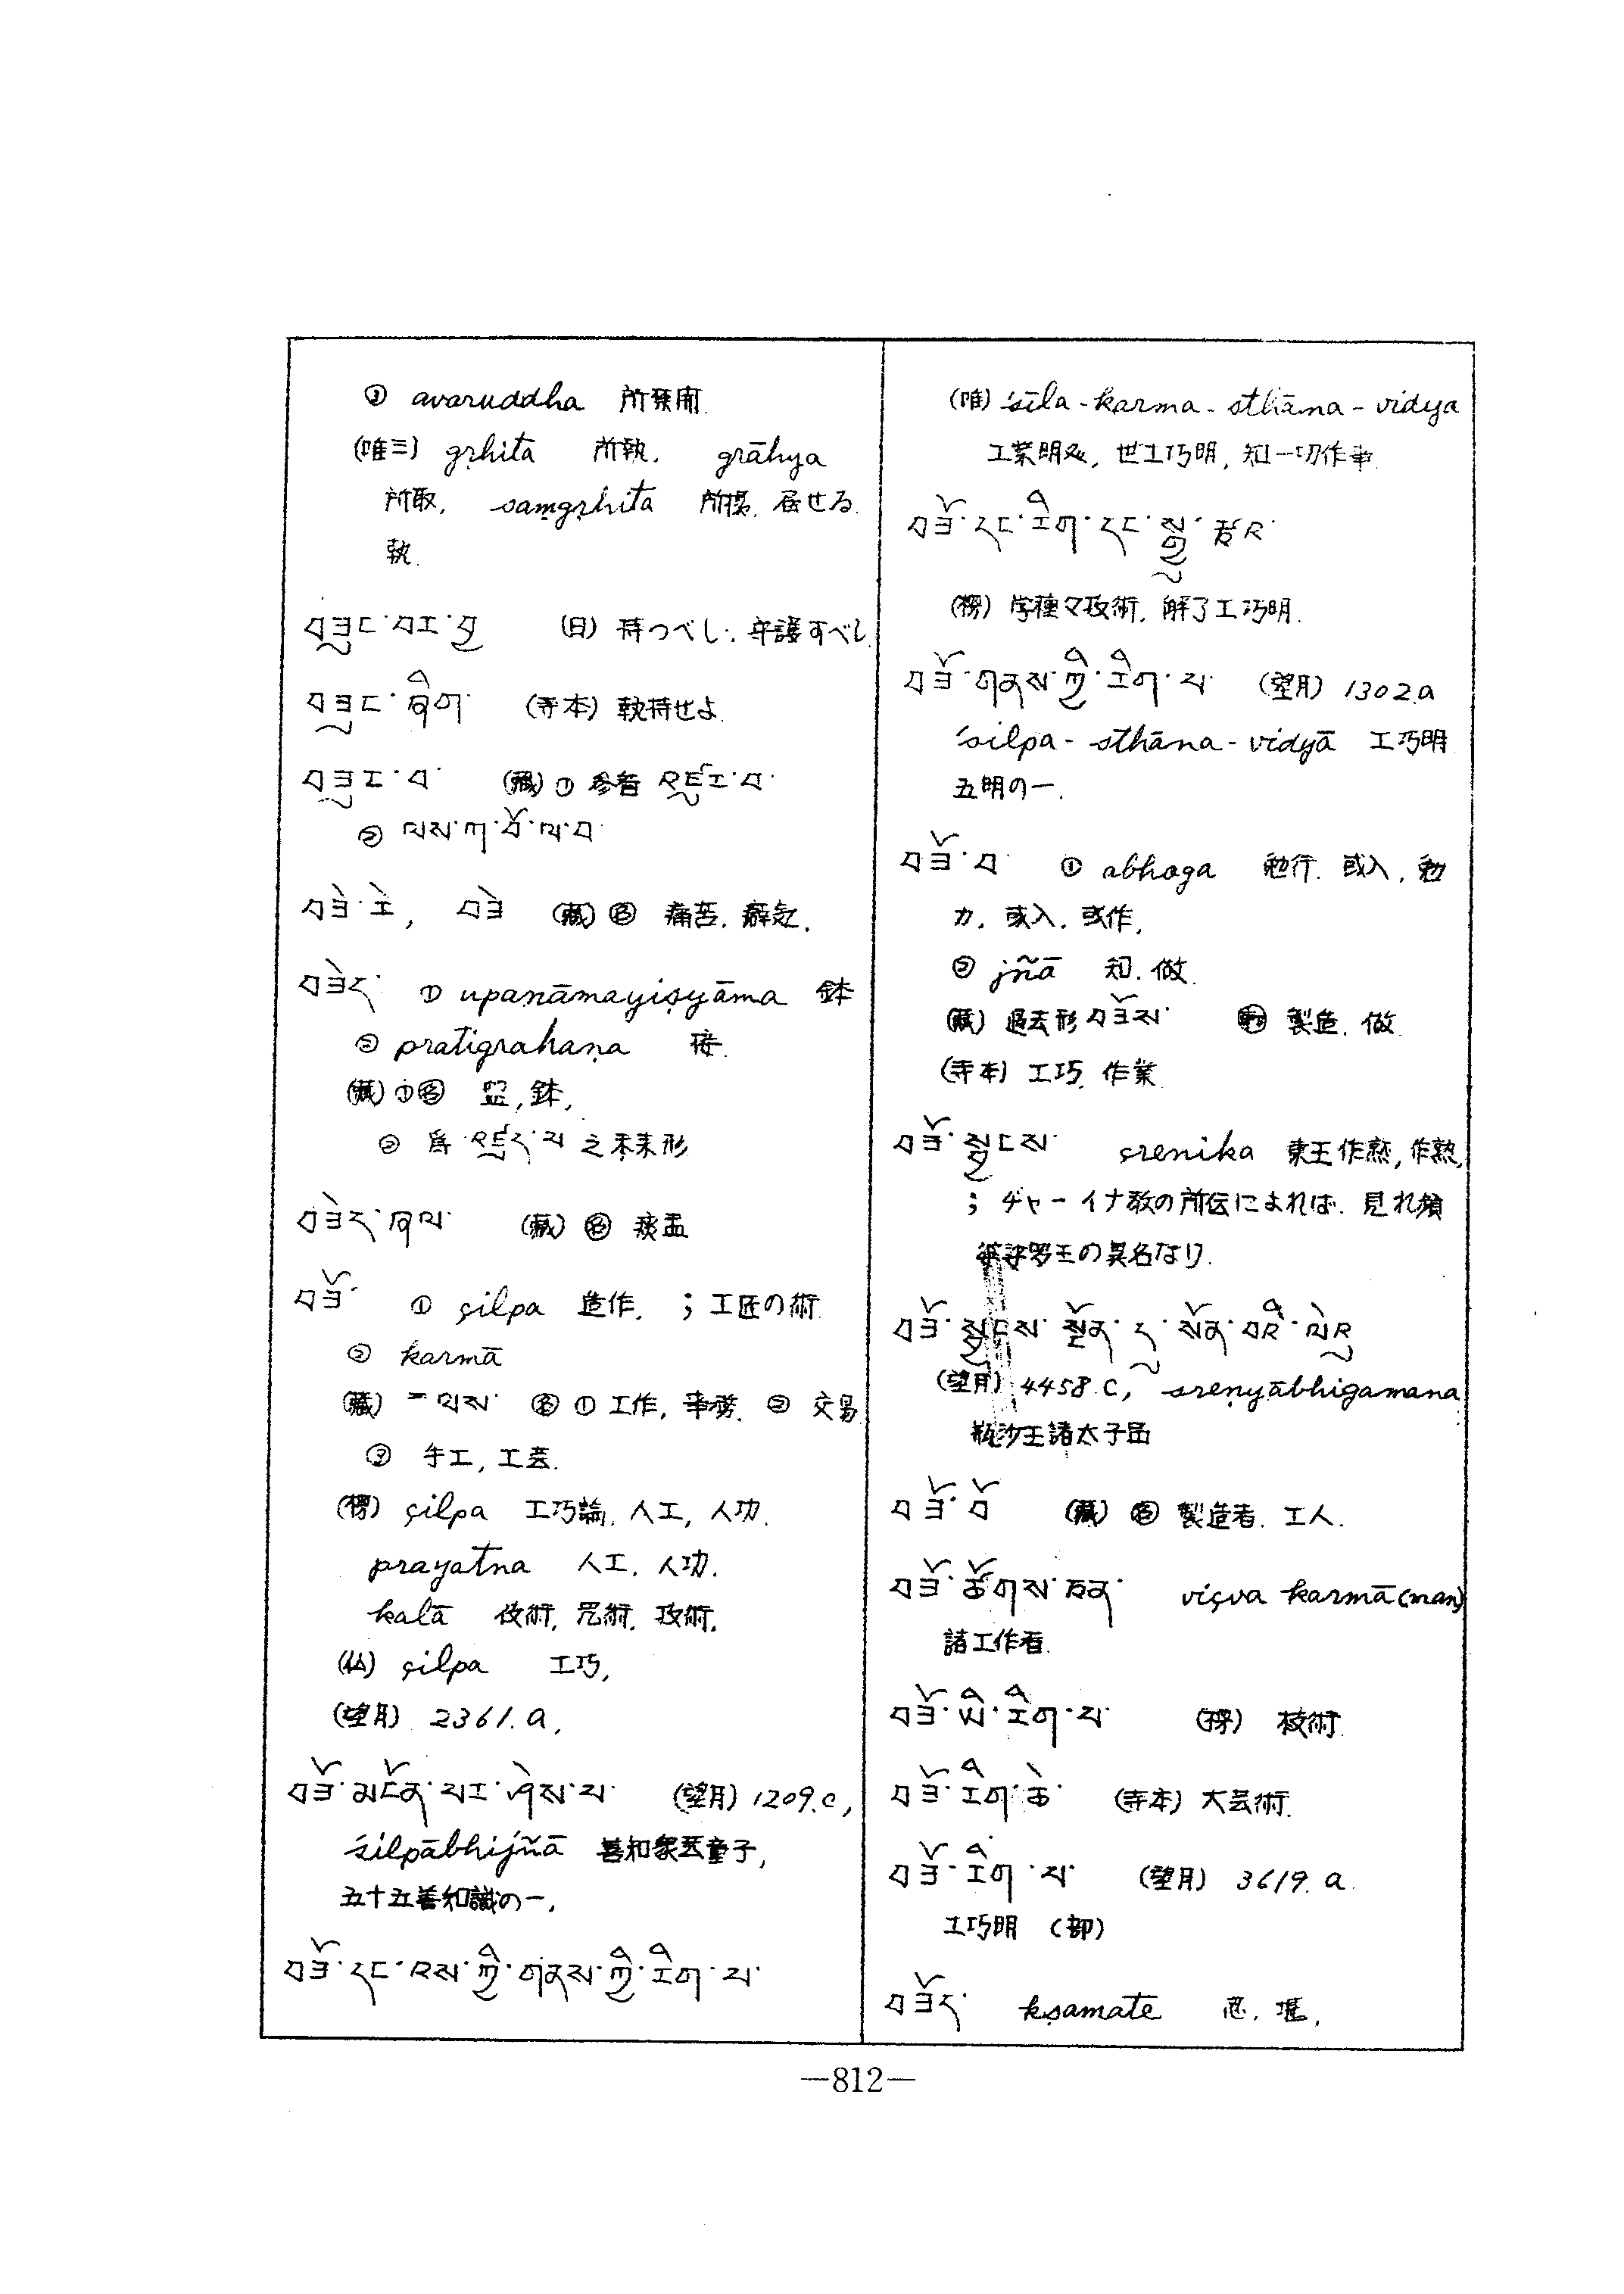 ③ avaruddha 所禁閉.
(唯三) gṛhita 所執. grāhya
所取, saṃgṛhita 所摂. 居せる.
執.
བཟུང་བར་བྱ (日) 持つべし、守護すべし
བཟུང་ཞིག (寺本) 執持せよ
བཟུར་བ་ (藏) ① 参看 འཛུར་བ་
② ལས་ཀ་བོ་ལ་བ་
བཟེ་རེ་, བཟེ (藏) 名 痛苦.
བཟེད་ ① upanāmayiṣyāma 鉢
② pratigrahaṇa 接.
(藏) ① 名 盌, 鉢,
② 爲 འཛེད་པ་ 之未来形
བཟེད་ཞལ་ (藏) 名 痰盂
བཟོ་ ① çilpa 造作. ; 工匠の術
② karmā
(藏) = ལས་ 名 ① 工作, 事務. ② 交易
③ 手工, 工芸.
(楞) çilpa 工巧論. 人工, 人功.
prayatna 人工. 人功.
kalā 伎術, 咒術. 技術.
(仏) çilpa 工巧,
(望月) 2361.a,
བཟོ་མངོན་པར་ཤེས་པ་ (望月) 1209.c,
śilpābhijñā 善知衆芸童子,
五十五善知識の一,
བཟོ་དང་ལས་ཀྱི་གནས་ཀྱི་རིག་པ་
(唯) śīla-karma-sthāna-vidya
工業明処, 世工巧明, 知一切作事
བཟོ་དང་རིག་དང་སྒྱུ་
(楞) 学種々技術, 解了工巧明.
བཟོ་གནས་ཀྱི་རིག་པ་ (望月) 1302.a
śilpa-sthāna-vidyā 工巧明
五明の一.
བཟོ་བ་ ① abhoga 勉行. 或入, 勉
力. 或入. 或作,
② jñā 知. 做
(藏) 過去形 བཟོས་ 動 製造. 做
(寺本) 工巧. 作業
བཟོ་སྦྱངས་ çrenika 東王作熟, 作熟,
; ヂャーイナ教の所伝によれば. 是れ頻
婆娑罗王の異名なり.
བཟོ་སྦྱངས་སྔོན་དུ་སོན་བའི་ལེའུ
(望月) 4458.c, srenyābhigamana
瓶沙王諸太子品
བཟོ་བོ (藏) 名 製造者. 工人.
བཟོ་ཚོགས་ཅན་ viçva karmā(man)
諸工作者.
བཟོ་ཡི་རིག་པ་ (楞) 技術
བཟོ་རིག་ཆེ་ (寺本) 大芸術.
བཟོ་རིག་པ་ (望月) 3619.a.
工巧明 (部)
བཟོད་ kṣamate 忍. 堪,
—812—